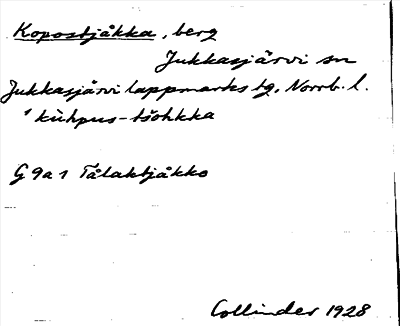 Kopostjåkka, berg
Jukkasjärvi sn
Jukkasjärvi lappmarks tg, Norrb. l.
ˈkŭhpus-tšohkka
G 9a1 Tålaktjåkko
Collinder 1928